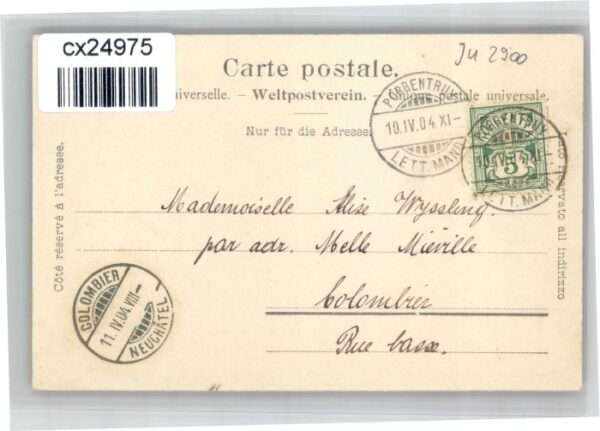 cx24975
Ju 2900
Carte postale.
universelle. – Weltpostverein. – Union postale universale.
Nur für die Adresse.
PORRENTRUY
10.IV.04 XI–
LETT. MAND.
PORRENTRUY
10.IV.04 XI–
LETT. MAND.
5
Côté réservé à l'adresse.
Lato riservato all indirizzo
Mademoiselle Alise Wyssling.
par adr. Melle Miéville
Colombier
Rue basse.
COLOMBIER
11.IV.04.VIII–
NEUCHÂTEL